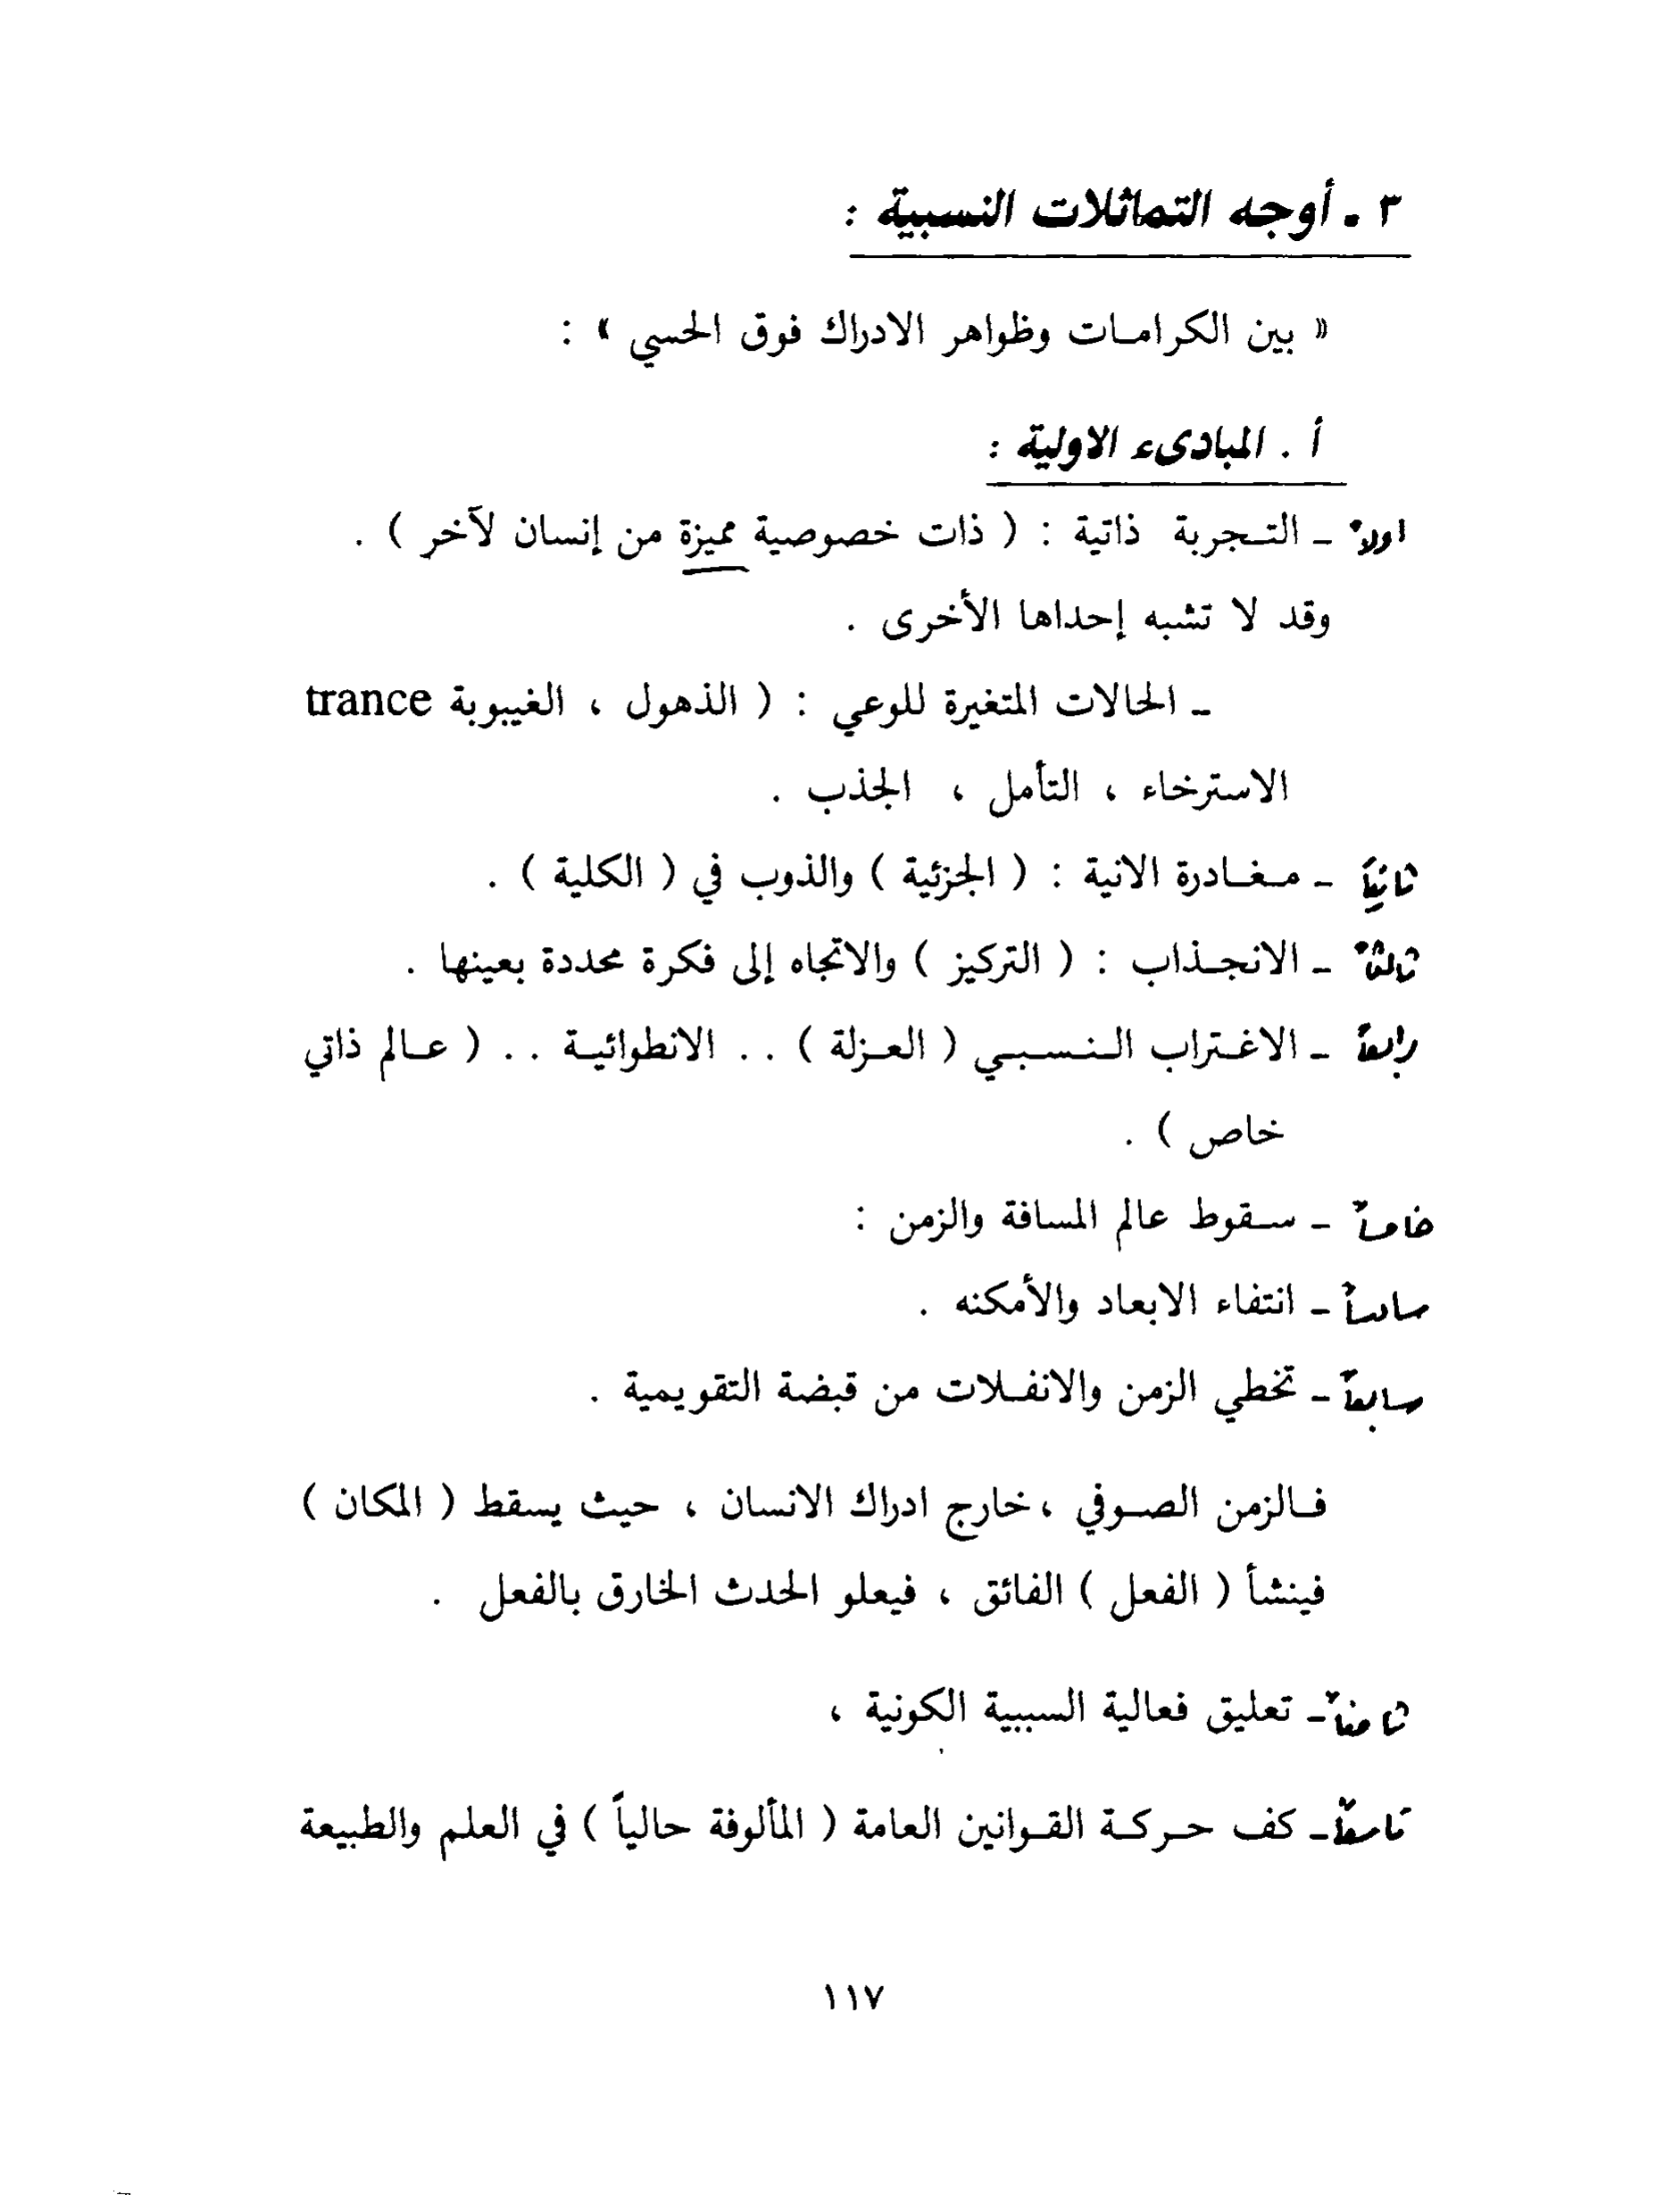 ٣ ـ أوجه التماثلات النسبية :
« بين الكرامات وظواهر الادراك فوق الحسي » :
أ . المبادىء الاولية :
اولاً ـ التجربة ذاتية : ( ذات خصوصية مميزة من إنسان لآخر ) .
وقد لا تشبه إحداها الأخرى .
ـ الحالات المتغيرة للوعي : ( الذهول ، الغيبوبة trance
الاسترخاء ، التأمل ، الجذب .
ثانياً ـ مغادرة الانية : ( الجزئية ) والذوب في ( الكلية ) .
ثالثاً ـ الانجذاب : ( التركيز ) والاتجاه إلى فكرة محددة بعينها .
رابعاً ـ الاغتراب النسبي ( العزلة ) . . الانطوائية . . ( عالم ذاتي
خاص ) .
خامساً ـ سقوط عالم المسافة والزمن :
سادساً ـ انتفاء الابعاد والأمكنه .
سابعاً ـ تخطي الزمن والانفلات من قبضة التقويمية .
فالزمن الصوفي ، خارج ادراك الانسان ، حيث يسقط ( المكان )
فينشأ ( الفعل ) الفائق ، فيعلو الحدث الخارق بالفعل .
ثامناً ـ تعليق فعالية السببية الكونية ،
تاسعاً ـ كف حركة القوانين العامة ( المألوفة حالياً ) في العلم والطبيعة
١١٧